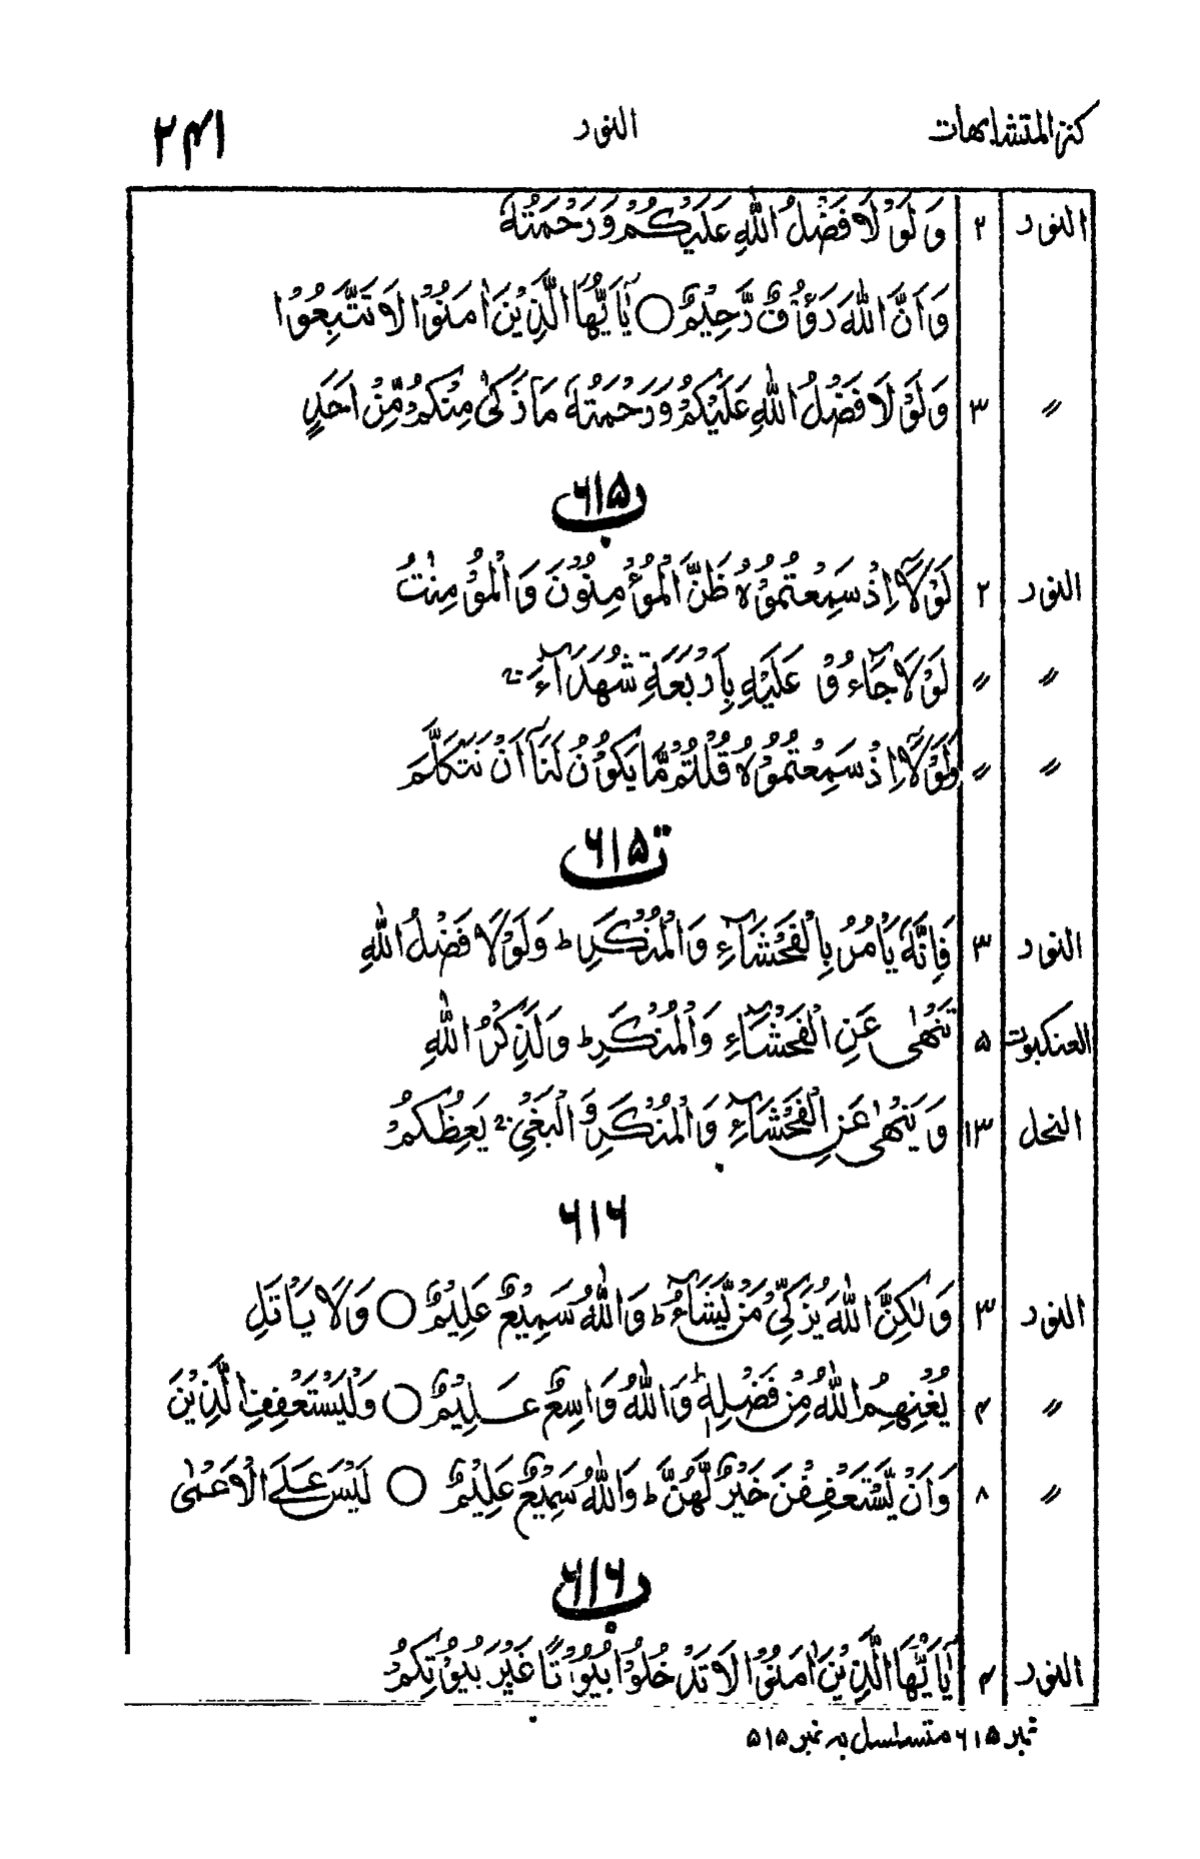 كنز المتشابهات النور ۲۴۱
النور ۲ وَلَوْلَا فَضْلُ اللّٰهِ عَلَيْكُمْ وَرَحْمَتُهٗ
وَاَنَّ اللّٰهَ رَءُوْفٌ رَّحِيْمٌ ○ يٰۤاَيُّهَا الَّذِيْنَ اٰمَنُوْا لَا تَتَّبِعُوْا
〃 ۳ وَلَوْلَا فَضْلُ اللّٰهِ عَلَيْكُمْ وَرَحْمَتُهٗ مَا زَكٰى مِنْكُمْ مِّنْ اَحَدٍ
۶۱۵ ب
النور ۲ لَوْلَاۤ اِذْ سَمِعْتُمُوْهُ ظَنَّ الْمُؤْمِنُوْنَ وَالْمُؤْمِنٰتُ
〃 〃 لَوْلَا جَآءُوْ عَلَيْهِ بِاَرْبَعَةِ شُهَدَآءَ ۚ
〃 〃 وَلَوْلَاۤ اِذْ سَمِعْتُمُوْهُ قُلْتُمْ مَّا يَكُوْنُ لَنَاۤ اَنْ نَّتَكَلَّمَ
۶۱۵ ت
النور ۳ فَاِنَّهٗ يَاْمُرُ بِالْفَحْشَآءِ وَالْمُنْكَرِ ؕ وَلَوْلَا فَضْلُ اللّٰهِ
العنكبوت ۵ تَنْهٰى عَنِ الْفَحْشَآءِ وَالْمُنْكَرِ ؕ وَلَذِكْرُ اللّٰهِ
النحل ۱۳ وَيَنْهٰى عَنِ الْفَحْشَآءِ وَالْمُنْكَرِ وَالْبَغْيِ ۚ يَعِظُكُمْ
۶۱۶
النور ۳ وَلٰكِنَّ اللّٰهَ يُزَكِّيْ مَنْ يَّشَآءُ ؕ وَاللّٰهُ سَمِيْعٌ عَلِيْمٌ ○ وَلَا يَاْتَلِ
〃 ۴ يُغْنِهِمُ اللّٰهُ مِنْ فَضْلِهٖ ؕ وَاللّٰهُ وَاسِعٌ عَلِيْمٌ ○ وَلْيَسْتَعْفِفِ الَّذِيْنَ
〃 ۸ وَاَنْ يَّسْتَعْفِفْنَ خَيْرٌ لَّهُنَّ ؕ وَاللّٰهُ سَمِيْعٌ عَلِيْمٌ ○ لَيْسَ عَلَى الْاَعْمٰى
۶۱۶ ب
النور ۴ يٰۤاَيُّهَا الَّذِيْنَ اٰمَنُوْا لَا تَدْخُلُوْا بُيُوْتًا غَيْرَ بُيُوْتِكُمْ
نمبر ۶۱۵ متسلسل بہ نمبر ۵۱۵